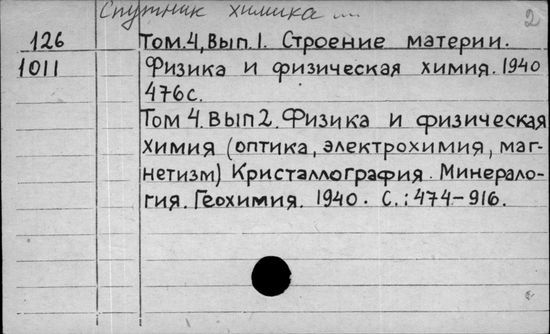 Спутник химика ...
2
126 Том.4, Вып.1. Строение материи.
1011 Физика и физическая химия. 1940
476с.
Том 4. Вып 2. Физика и физическая
химия (оптика, электрохимия, маг-
нетизм) Кристаллография. Минерало-
гия. Геохимия. 1940. С.: 474-916.